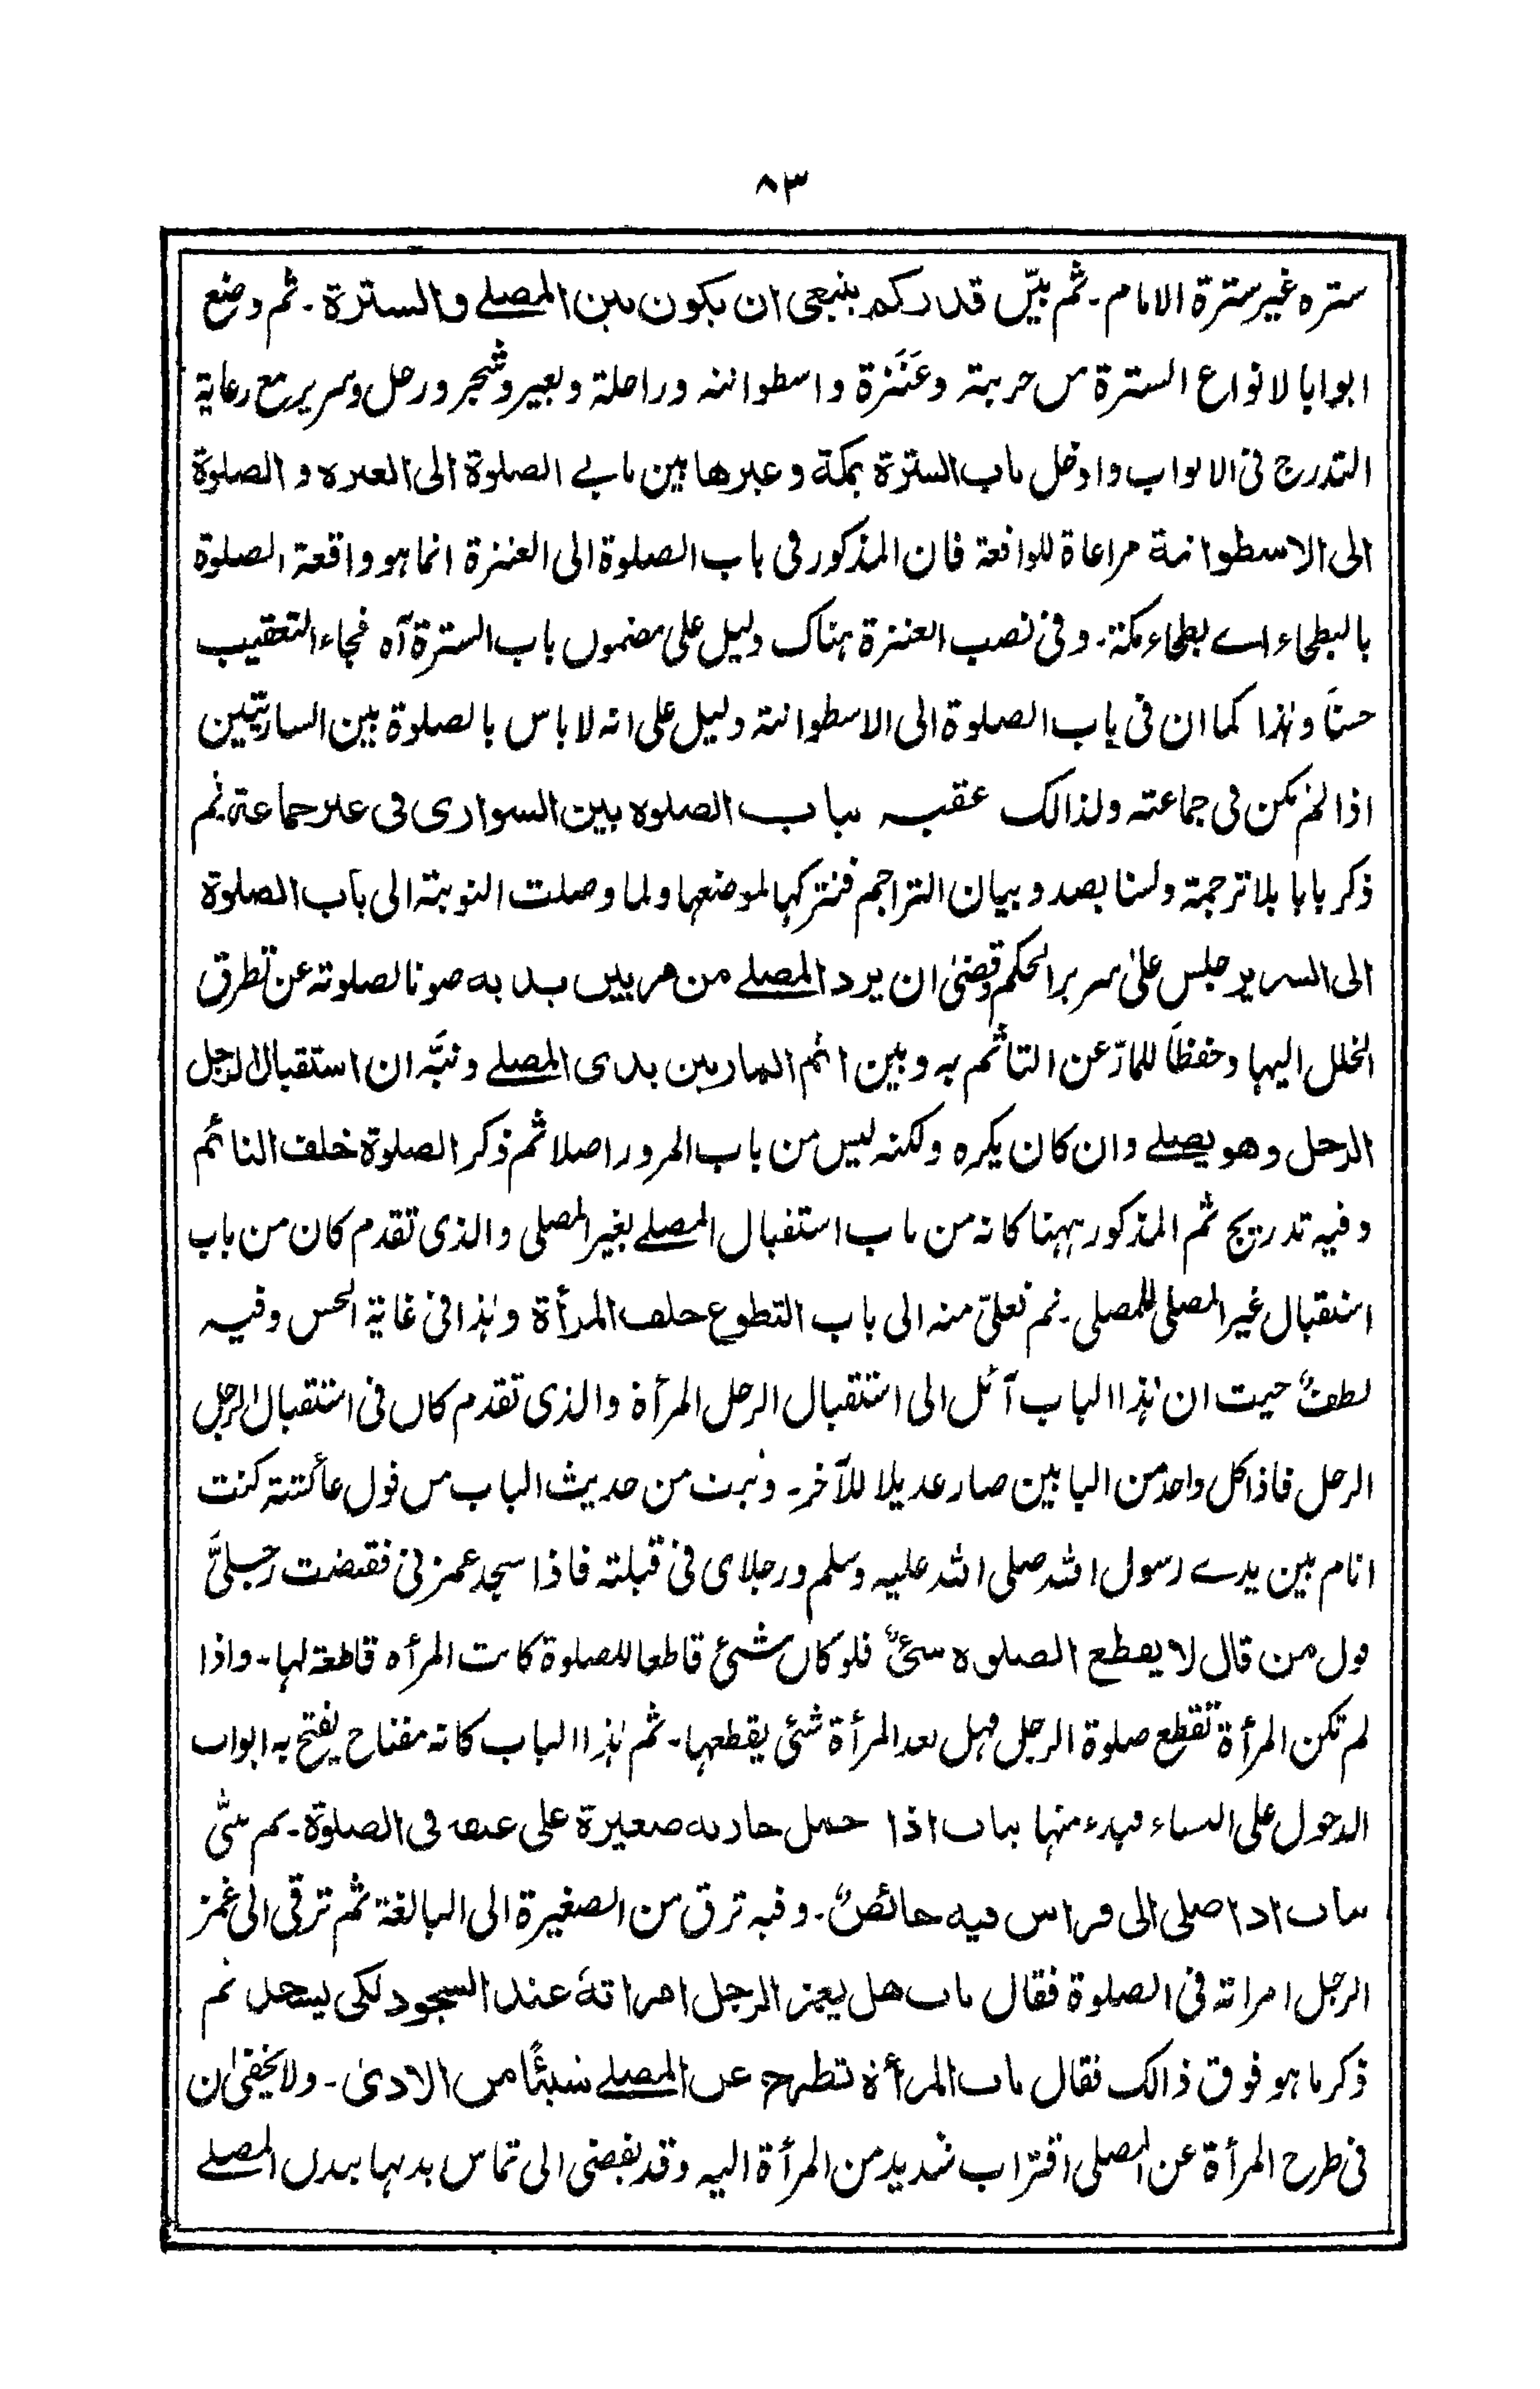 ٨٣
سترہ غیر سترة الامام۔ ثم بیّن قدر کم ینبغی ان یکون بین المصلے والسترة۔ ثم وضع
ابوابا لانواع السترة من حربته وعَنَزة واسطوانته وراحلة وبعیر وشجر ورحل وسریر مع رعایة
التدرج فی الابواب وادخل باب السترة بمکة وغیرها بین بابے الصلوة الی العنزہ و الصلوة
الی الاسطوانة مراعاة للواقعة فان المذکور فی باب الصلوة الی العنزة انما ہو واقعة الصلوة
بالبطحاء اے بطحاء مکة۔ وفی نصب العنزة ہناک دلیل علی مضمون باب السترة آہ فجاء التعقیب
حسنًا وہٰذا کما ان فی باب الصلوة الی الاسطوانتہ دلیل علی انہ لا باس بالصلوة بین الساریتین
اذا لم یکن فی جماعتہ ولذالک عقبہ بباب الصلوہ بین السواری فی غیر جماعة ثم
ذکر بابا بلا ترجمة ولسنا بصدد بیان التراجم فنترکہا لموضعہا ولما وصلت النوبتہ الی باب الصلوة
الی السریر جلس علیٰ سریر الحکم وقضیٰ ان یرد المصلے من مر بین یدیه صونا لصلوتہ عن تطرق
الخلل الیہا وحفظًا للمارّ عن التأثم بہ وبین اثم المار بین یدی المصلے ونبَّہ ان استقبال الرجل
الرجل وهو یصلے وان کان یکرہ ولکنہ لیس من باب المرور اصلا ثم ذکر الصلوة خلف النائم
وفیہ تدریج ثم المذکور ہہنا کانہ من باب استقبال المصلے بغیر المصلی والذی تقدم کان من باب
استقبال غیر المصلی للمصلی۔ ثم تعلیّ منہ الی باب التطوع خلف المرأة وہٰذا فی غایة الحسن وفیہ
لطفٌ حیث ان ہٰذا الباب آئل الی استقبال الرجل المرأة والذی تقدم کان فی استقبال الرجل
الرجل فاذا کل واحد من البابین صار عدیلا للآخر۔ وبرٰت من حدیث الباب من قول عائشتہ کنت
انام بین یدے رسول اللہ صلی اللہ علیہ وسلم ورجلای فی قبلتہ فاذا سجد غمزنی فقبضت رجلیَّ
قول من قال لا یقطع الصلوہ شیٌٔ فلو کان شیٔ قاطعا للصلوة کانت المرأہ قاطعة لہا۔ واذا
لم تکن المرأة تقطع صلوة الرجل فہل بعد المرأة شیٔ یقطعہا۔ ثم ہٰذا الباب کانہ مفتاح یفتح بہ ابواب
الدخول علی النساء فبدء منہا بباب اذا حمل جاریه صغیرة علی عنقه فی الصلوة۔ ثم ثنّی
بباب اذا صلی الی فراس فیه حائضٌ۔ وفیہ ترق من الصغیرة الی البالغة ثم ترقی الی غمز
الرجل امراتہ فی الصلوة فقال باب هل یغمز الرجل امراتهٗ عند السجود لکی یسجد ثم
ذکر ما ہو فوق ذالک فقال باب المرأة تطرح عن المصلے شیئًا من الاذیٰ۔ ولا یخفیٰ ان
فی طرح المرأة عن المصلی اقتراب شدید من المرأة الیہ وقد یفضی الی تماس بدنہا ببدن المصلے